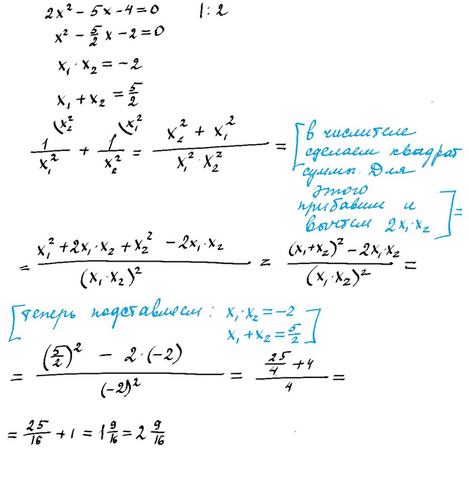 2x² - 5x - 4 = 0 |:2
x² - 5/2 x - 2 = 0
x₁ · x₂ = -2
x₁ + x₂ = 5/2
1/x₁² (x₂² + 1/x₂² (x₁² = (x₂² + x₁²)/(x₁² · x₂²) = [в числителе
сделаем квадрат
суммы. Для
этого
прибавим и
вычтем 2x₁·x₂] =
= (x₁² + 2x₁·x₂ + x₂² - 2x₁·x₂)/(x₁·x₂)² = ((x₁+x₂)² - 2x₁·x₂)/(x₁·x₂)² =
[теперь подставляем: x₁·x₂ = -2
x₁ + x₂ = 5/2]
= ((5/2)² - 2·(-2))/(-2)² = (25/4 + 4)/4 =
= 25/16 + 1 = 1 9/16 = 2 9/16